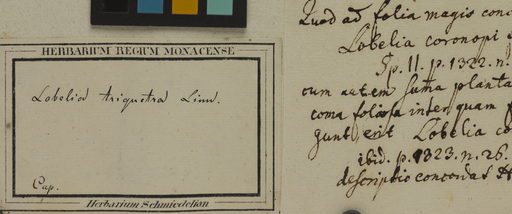 HERBARIUM REGIUM MONACENSE
Lobelia triquetra Linn.
Cap.
Herbarium Schmiedelian
Quod ad folia magis conc
Lobelia coronopi
Sp. II. p. 1322. n.
cum autem summa planta
coma foliosa inter quam
gunt, erit Lobelia co
ibid. p. 1323. n. 26.
descriptio concordat